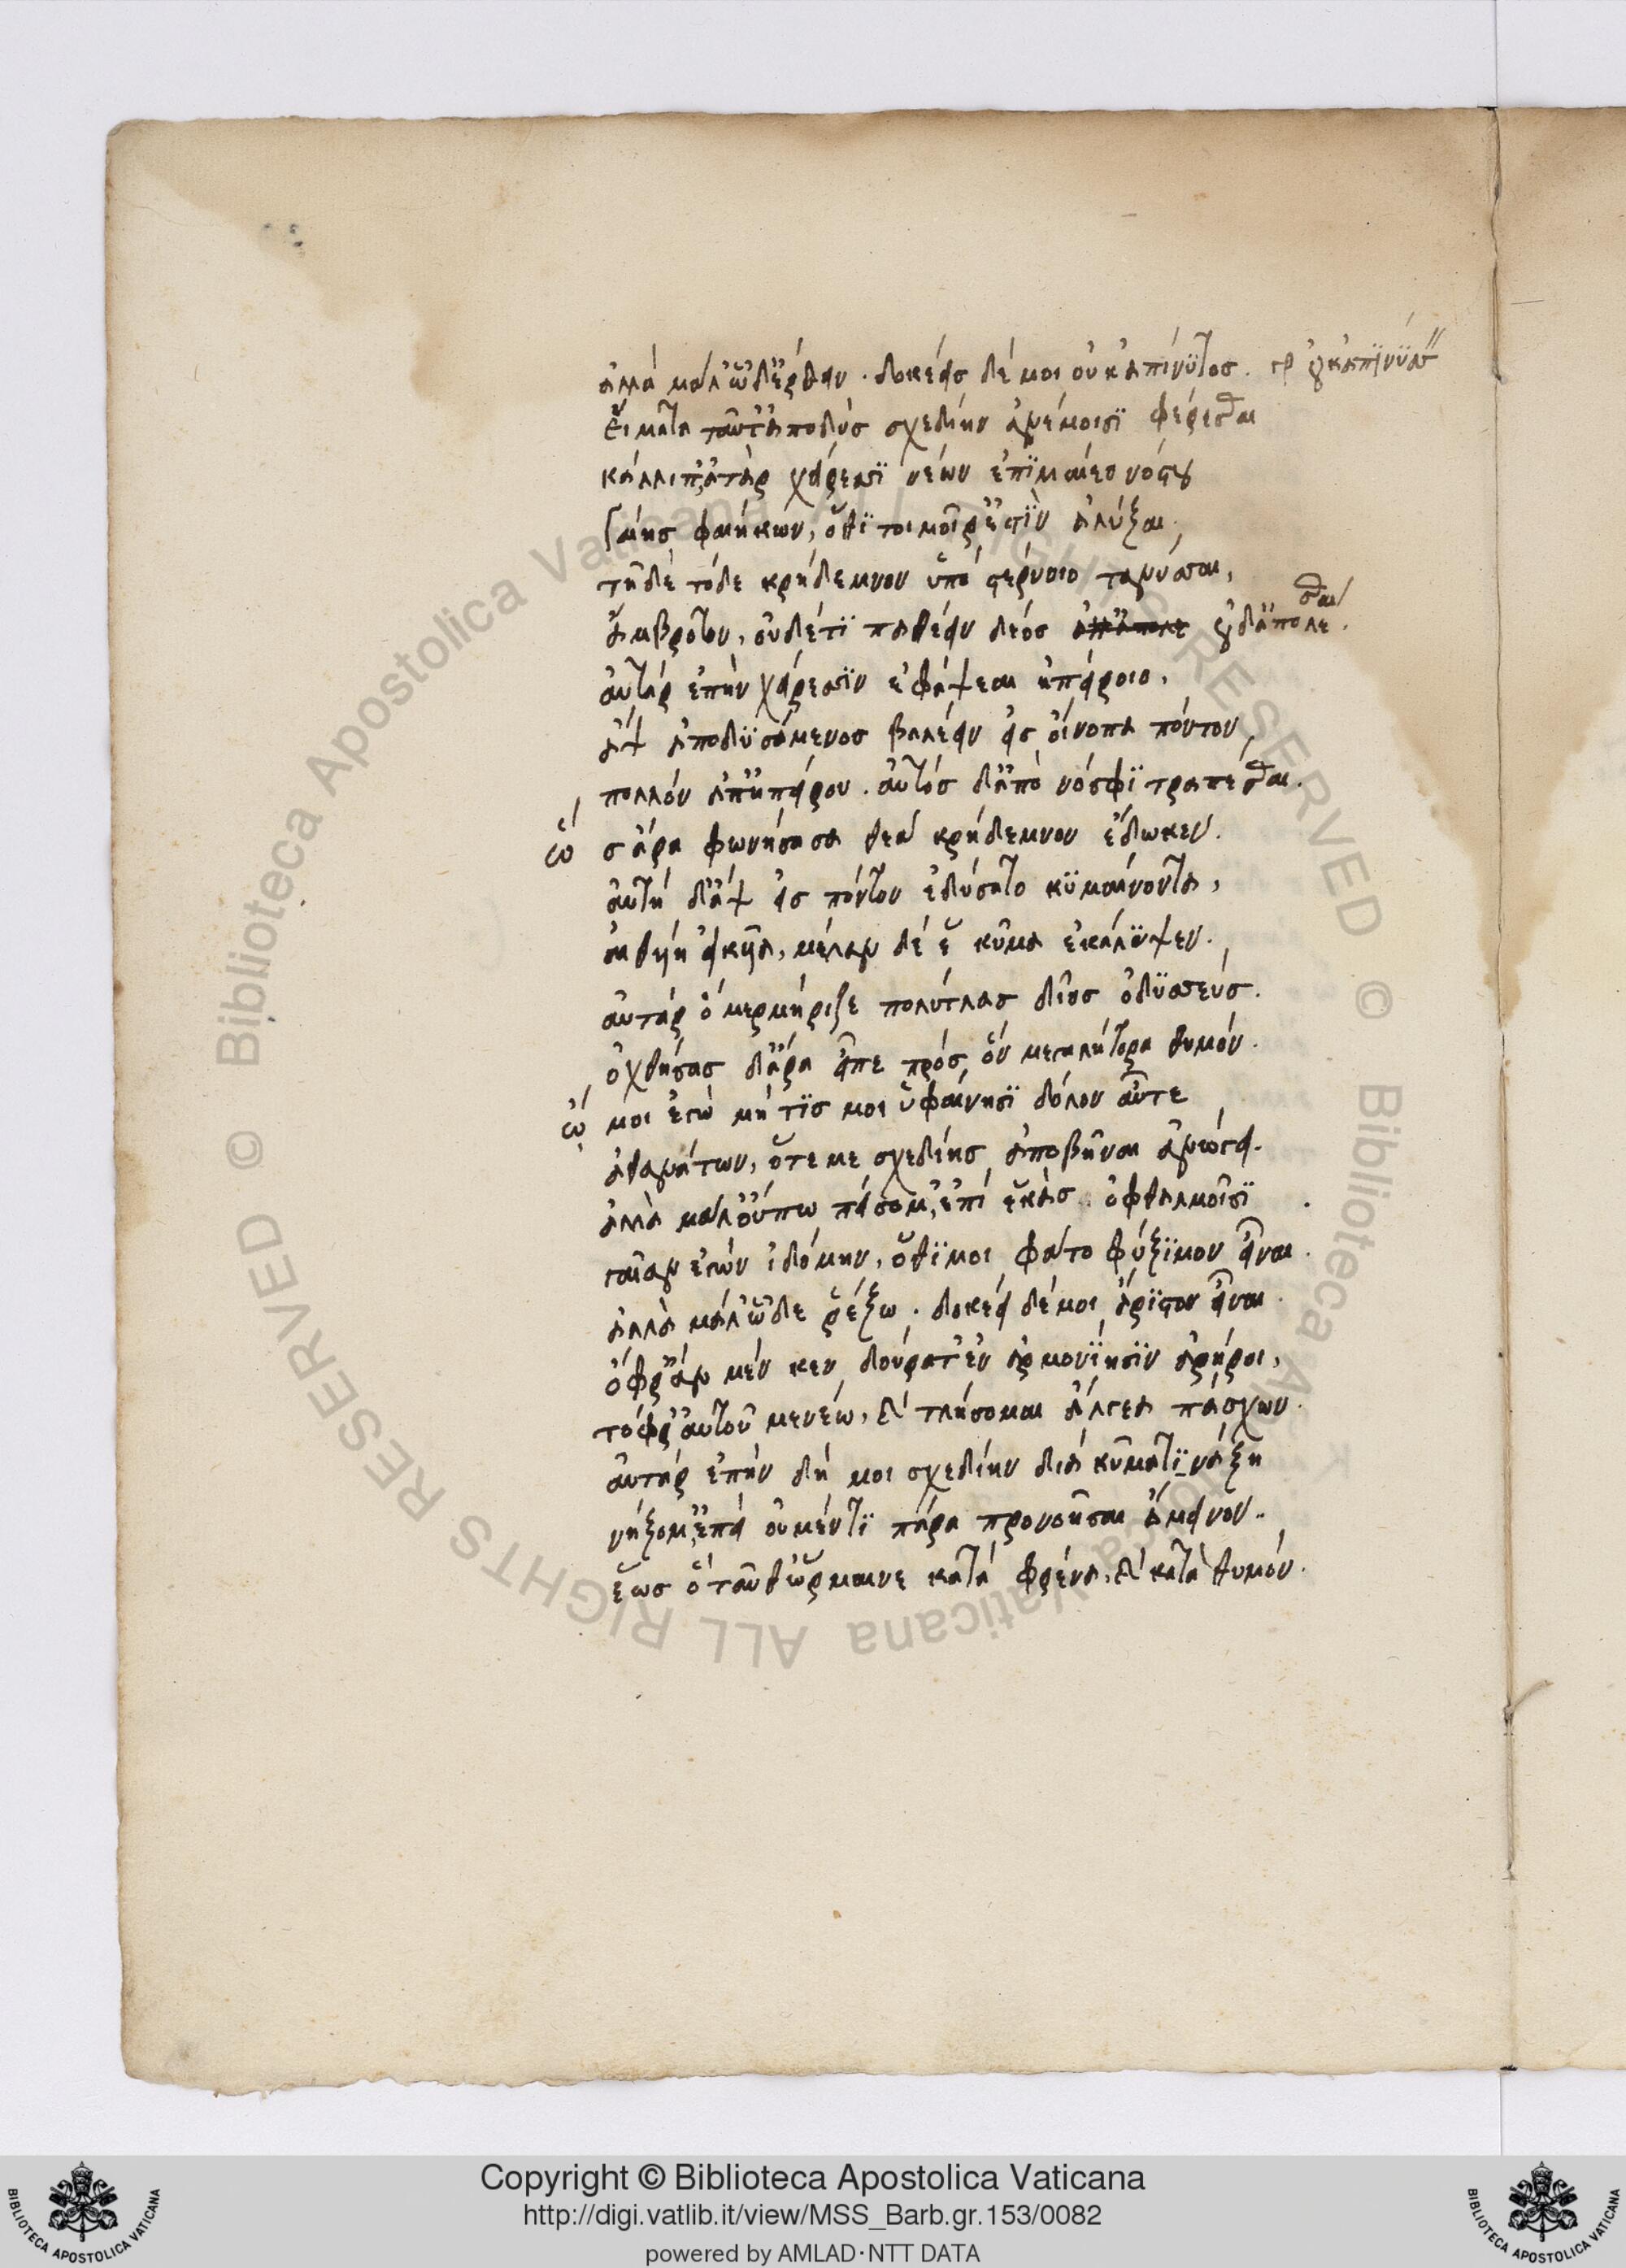 ἀλλὰ μάλ' ὧδ' ἔρξειν. δοκέεις δέ μοι οὐκ ἀπινύτος.
εἵματα ταῦτ' ἀποδὺς σχεδίην ἀνέμοισϊ φέρεσθαι
κάλλιπ', ἀτὰρ χείρεσϊ νέων ἐπϊμαίεο νόστου
γαίης φαιήκων, ὅθϊ τοι μοῖρ' ἐστὶν ἀλύξαι,
τῆ δὲ τόδε κρήδεμνον ὑπὸ στέρνοιο τανύσσαι,
ἄμβροτον, οὐδέ τϊ παθέειν δέος οὐδ' ἀπολέσθαι.
αὐτὰρ ἐπὴν χείρεσσϊν ἐφάψεαι ἠπείροιο,
ἂψ ἀποδϋσάμενος βαλέειν εἰς οἴνοπα πόντον,
πολλὸν ἀπ' ἠπείρου. αὐτὸς δ' ἀπὸ νόσφϊ τραπέσθαι.
ὣ ς ἄρα φωνήσασα θεὰ κρήδεμνον ἔδωκεν.
αὐτὴ δ' ἂψ εἰς πόντον ἐδύσατο κϋμαίνοντα,
αἰθυίη εἰκυῖα, μέλαν δέ ἑ κῦμα ἐκάλϋψεν.
αὐτὰρ ὁ μερμήριξε πολύτλας δῖος ὀδϋσσεύς.
ὀχθήσας δ' ἄρα εἶπε πρὸς ὃν μεγαλήτορα θυμόν.
ὤ μοι ἐγὼ μή τϊς μοι ὑφαίνησϊ δόλον αὖτε
ἀθανάτων, ὅτε με σχεδίης ἀποβῆναι ἀνώγει.
ἀλλὰ μάλ' οὔπω πείσομ', ἐπεὶ ἑκὰς ὀφθαλμοῖσϊ
γαῖαν ἐγὼν ἰδόμην, ὅθϊ μοι φάτο φύξϊμον εἶναι.
ἀλλὰ μάλ' ὧδε ῥέξω. δοκέει δέ μοι ἄρϊστον εἶναι.
ὄφρ' ἂν μέν κεν δούρατ' ἐν ἁρμονϊῃσϊν ἀρήροι,
τόφρ' αὐτοῦ μενέω, καὶ τλήσομαι ἄλγεα πάσχων.
αὐτὰρ ἐπὴν δή μοι σχεδίην διὰ κῦμα τϊνάξη
νήξομ', ἐπεὶ οὐ μέν τϊ πάρα προνοῆσαι ἄμεινον.
ἕως ὃ ταῦθ' ὥρμαινε κατὰ φρένα, καὶ κατὰ θυμόν.